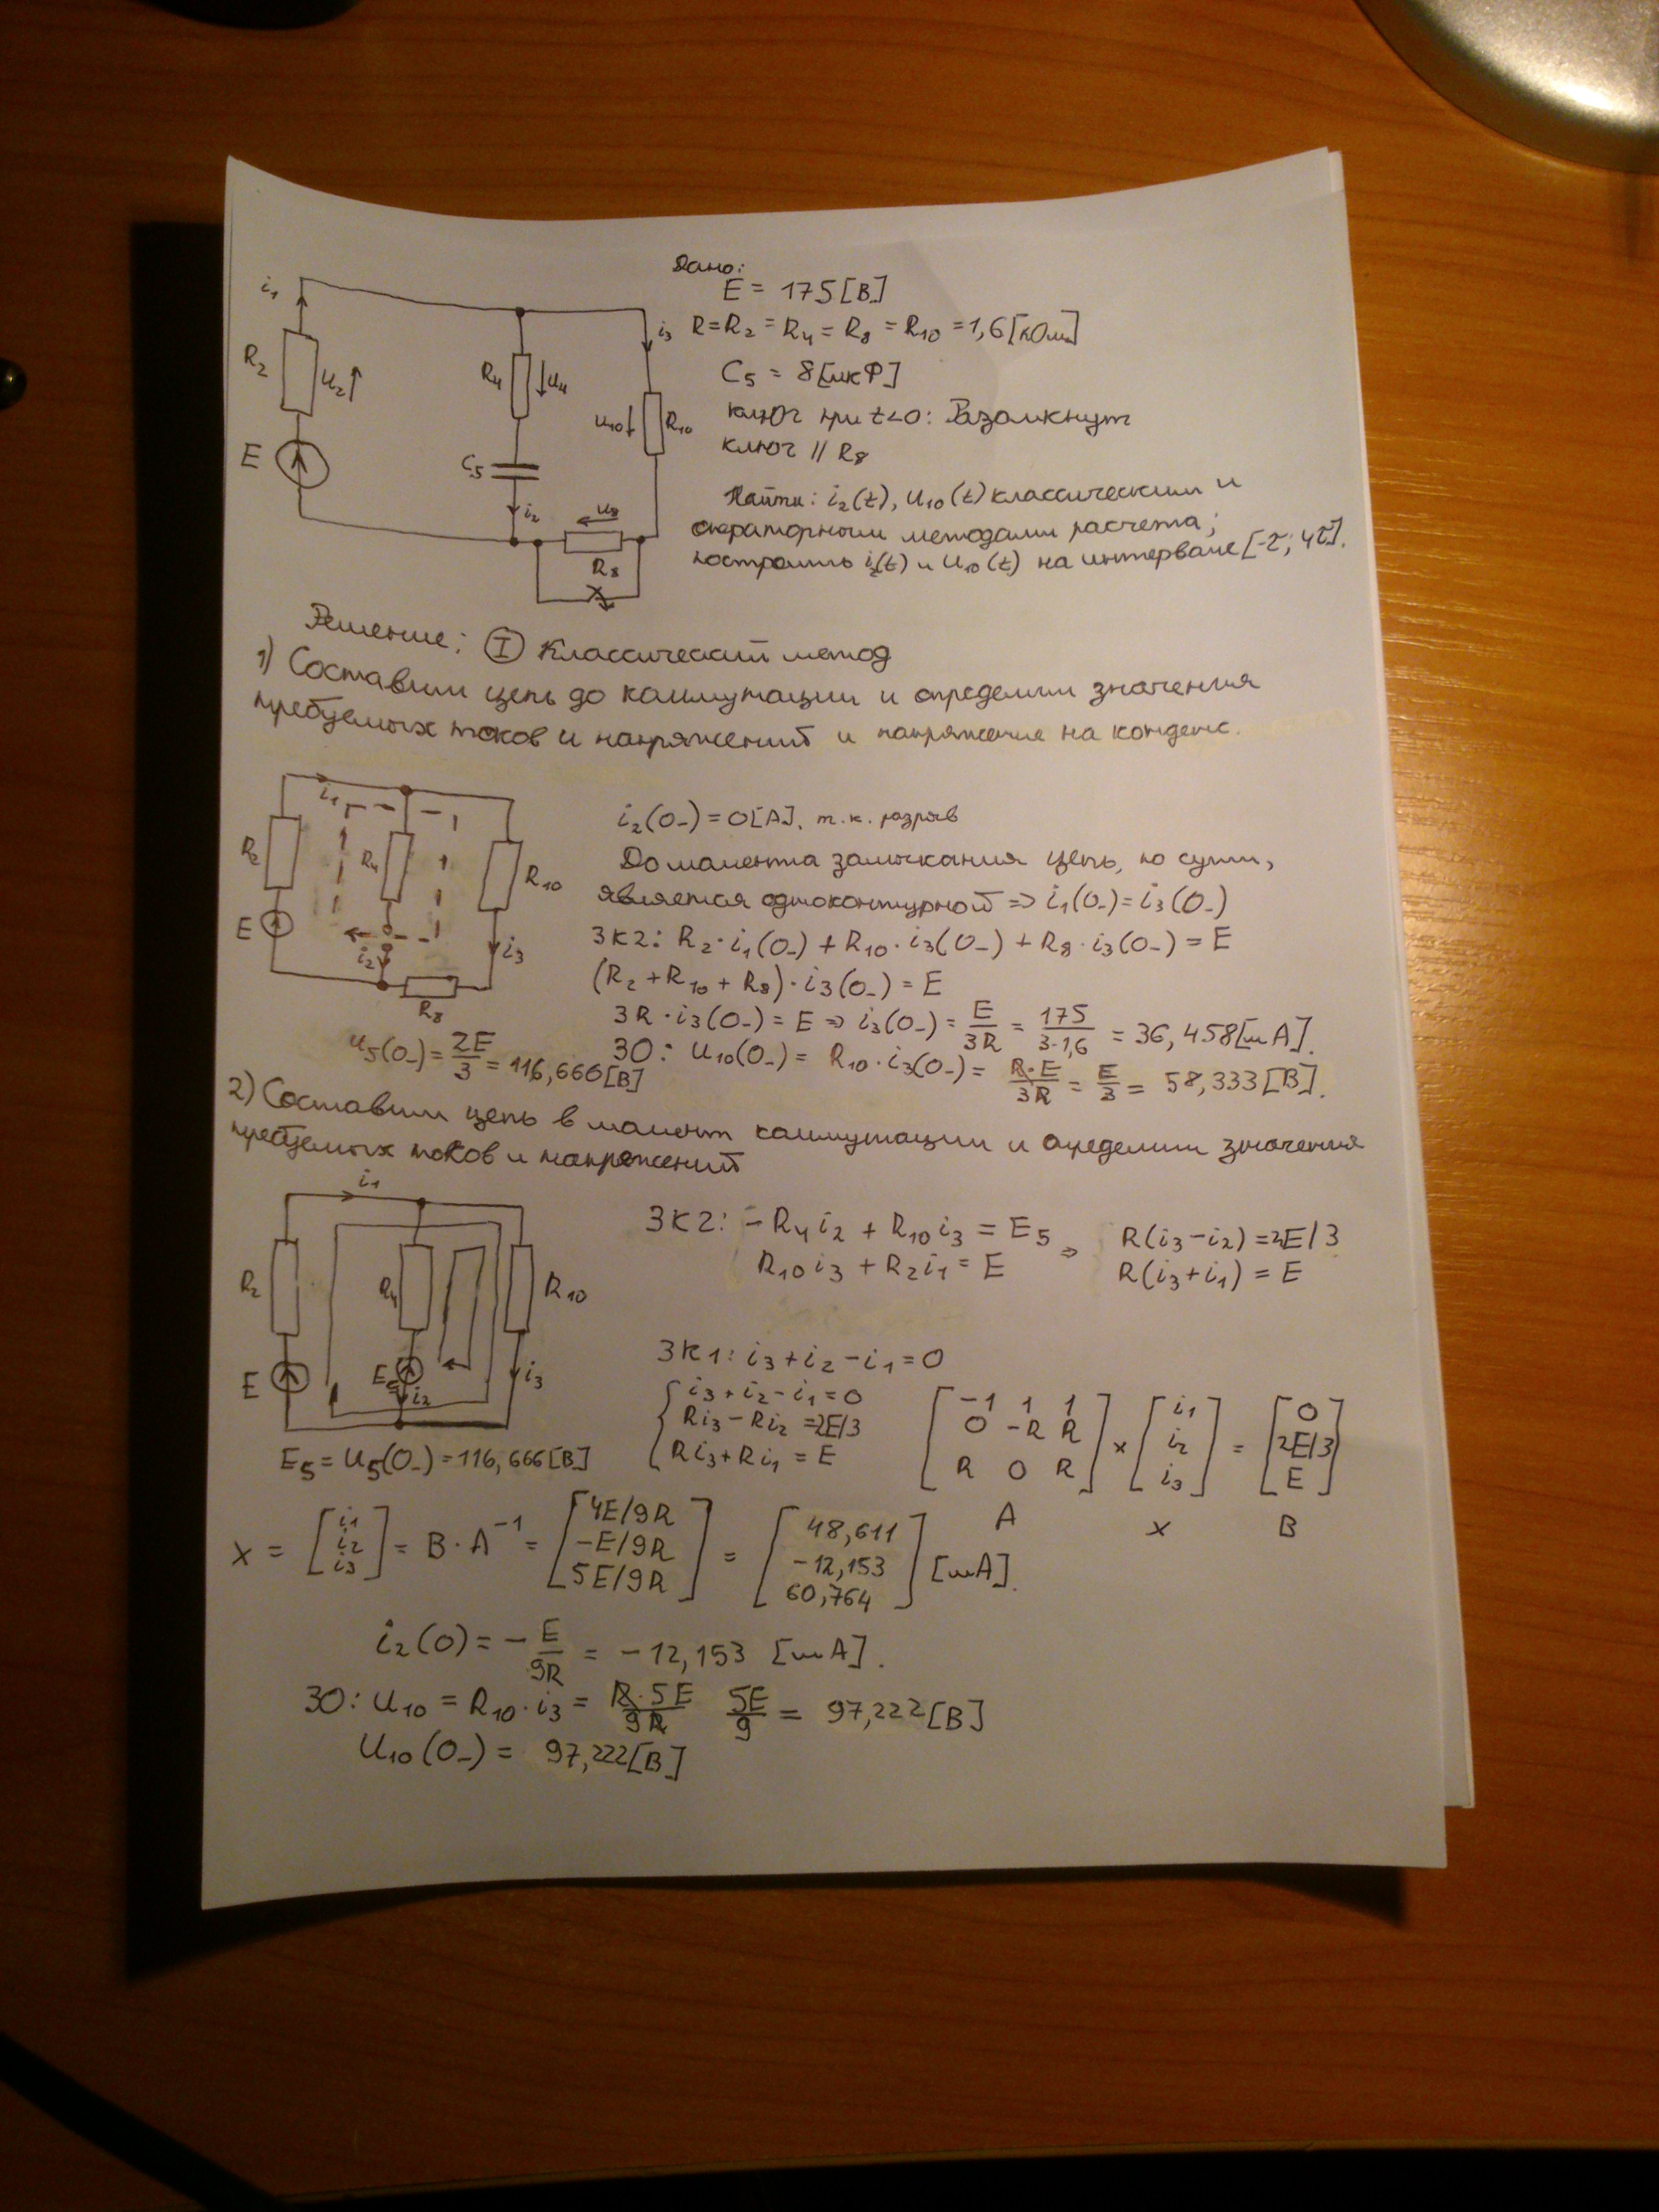 Дано:
E = 175[В]
R=R2 = R4 = R8 = R10 = 1,6[кОм]
C5 = 8[мкФ]
ключ при t<0: Разомкнут
ключ // R8
Найти: i2(t), U10(t) классическим и
операторным методами расчета;
построить i2(t) и U10(t) на интервале [-τ; 4τ].
i1
R2
U2
E
R4
U4
C5
i2
i3
U10
R10
U8
R8
Решение: I Классический метод
1) Составим цепь до коммутации и определим значения
требуемых токов и напряжений и напряжение на конденс.
i1
R2
R4
R10
E
i2
i3
R8
i2(0-) = 0[A], т.к. разрыв
До момента замыкания цепь, по сути,
является одноконтурной => i1(0-) = i3(0-)
ЗК2: R2·i1(0-) + R10·i3(0-) + R8·i3(0-) = E
(R2 + R10 + R8)·i3(0-) = E
3R·i3(0-) = E => i3(0-) = E/3R = 175/3·1,6 = 36,458[mA].
U5(0-) = 2E/3 = 116,666[В]
ЗО: U10(0-) = R10·i3(0-) = R·E/3R = E/3 = 58,333[В].
2) Составим цепь в момент коммутации и определим значения
требуемых токов и напряжений
i1
R2
R4
R10
E
E5
i2
i3
ЗК2: -R4i2 + R10i3 = E5 => R(i3-i2) = 2E/3
R10i3 + R2i1 = E R(i3+i1) = E
ЗК1: i3 + i2 - i1 = 0
i3 + i2 - i1 = 0
Ri3 - Ri2 = 2E/3
Ri3 + Ri1 = E
[-1 1 1] [i1] [0]
[0 -R R] × [i2] = [2E/3]
[R 0 R] [i3] [E]
A x B
E5 = U5(0-) = 116,666[В]
x = [i1 i2 i3] = B·A⁻¹ = [4E/9R -E/9R 5E/9R] = [48,611 -12,153 60,764] [mA].
i2(0) = -E/9R = -12,153 [mA].
ЗО: U10 = R10·i3 = R·5E/9R 5E/9 = 97,222[В]
U10(0-) = 97,222[В]